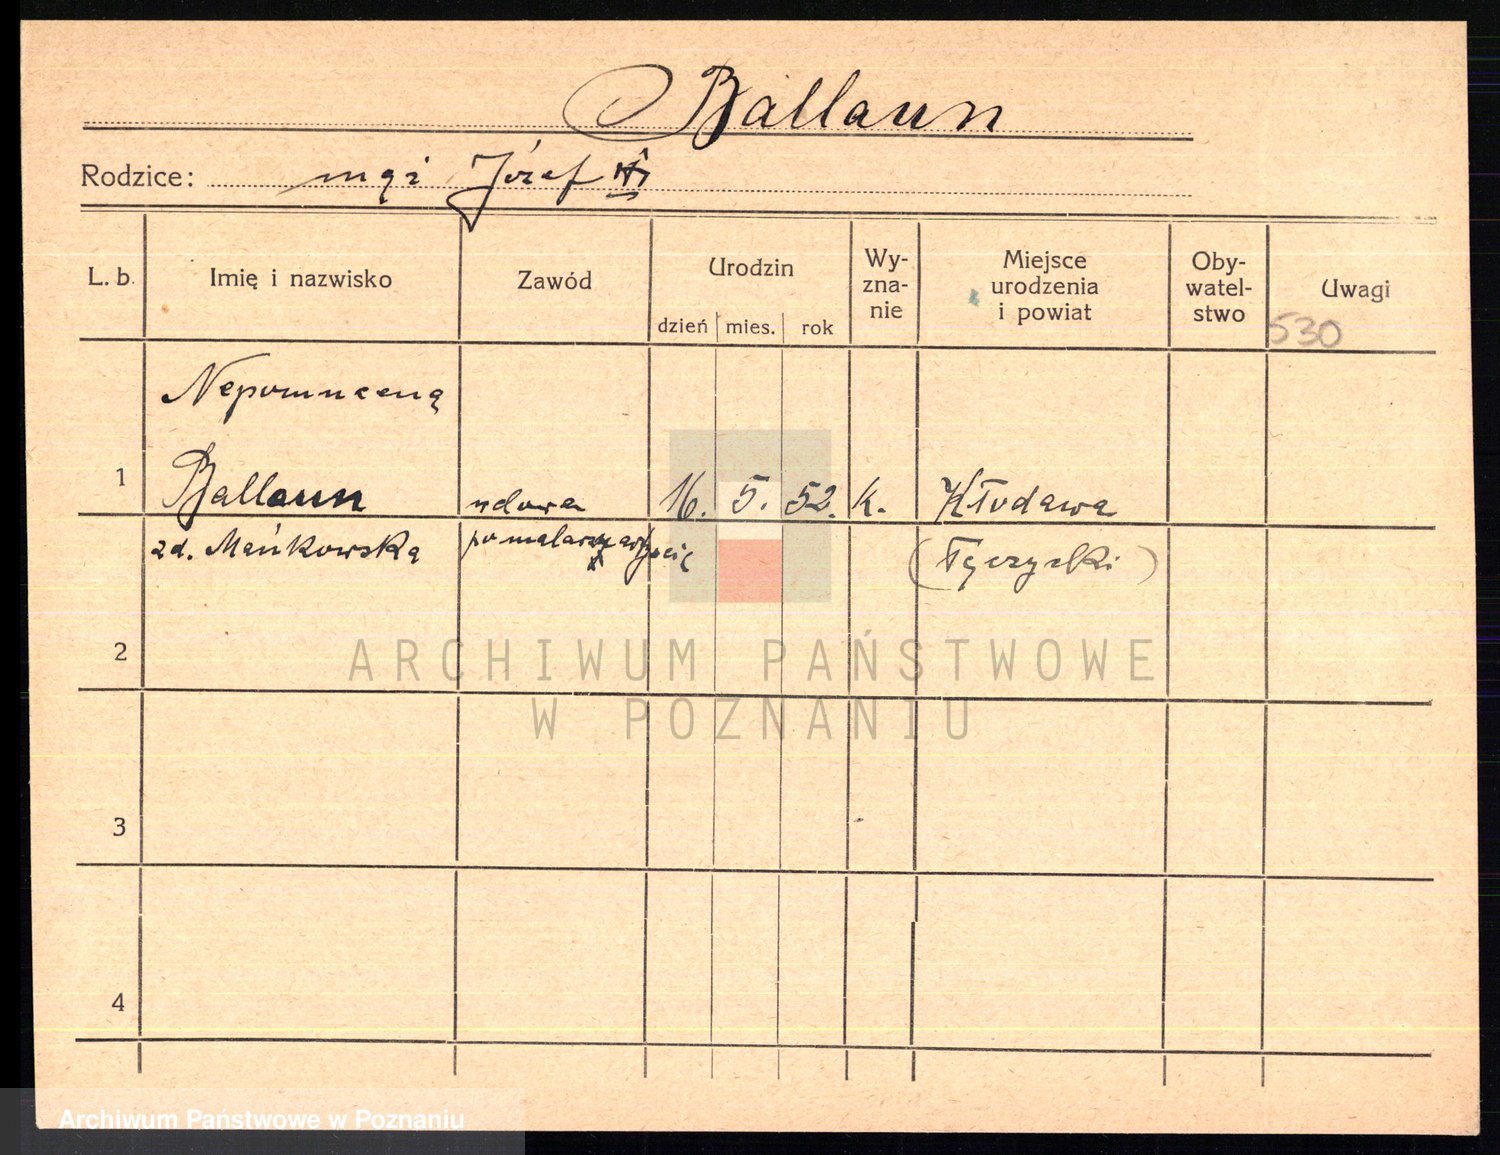 Ballaun
Rodzice: mąż Józef
L. b. Imię i nazwisko Zawód Urodzin dzień mies. rok Wy-zna-nie Miejsce urodzenia i powiat Oby-watel-stwo Uwagi
530
Nepomucena
1 Ballaun wdowa 16. 5. 52. k. Kłodawa
zd. Mańkowska po malarzu
2
ARCHIWUM PAŃSTWOWE
W POZNANIU
3
4
Archiwum Państwowe w Poznaniu